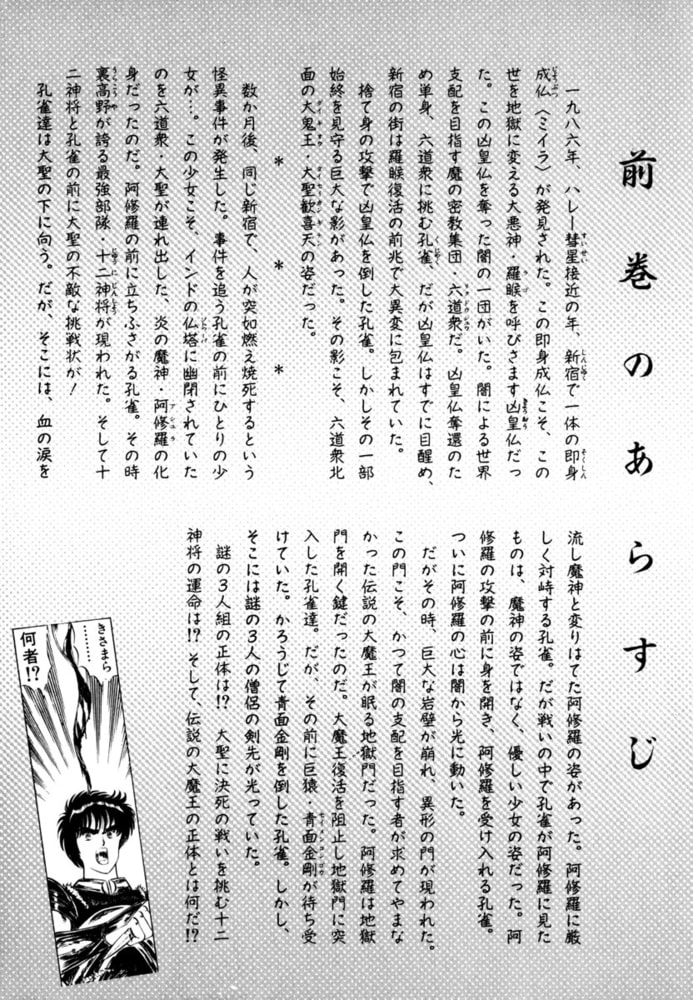 前巻のあらすじ
一九八六年、ハレー彗星接近の年、新宿で一体の即身
成仏〈ミイラ〉が発見された。この即身成仏こそ、この
世を地獄に変える大悪神・羅睺を呼びさます凶皇仏だっ
た。この凶皇仏を奪った闇の一団がいた。闇による世界
支配を目指す魔の密教集団・六道衆だ。凶皇仏奪還のた
め単身、六道衆に挑む孔雀、だが凶皇仏はすでに目醒め、
新宿の街は羅睺復活の前兆で大異変に包まれていた。
捨て身の攻撃で凶皇仏を倒した孔雀。しかしその一部
始終を見守る巨大な影があった。その影こそ、六道衆北
面の大鬼王・大聖歓喜天の姿だった。
＊　＊　＊
数か月後、同じ新宿で、人が突如燃え焼死するという
怪異事件が発生した。事件を追う孔雀の前にひとりの少
女が…。この少女こそ、インドの仏塔に幽閉されていた
のを六道衆・大聖が連れ出した、炎の魔神・阿修羅の化
身だったのだ。阿修羅の前に立ちふさがる孔雀。その時
裏高野が誇る最強部隊・十二神将が現われた。そして十
二神将と孔雀の前に大聖の不敵な挑戦状が！
孔雀達は大聖の下に向う。だが、そこには、血の涙を
流し魔神と変りはてた阿修羅の姿があった。阿修羅に厳
しく対峙する孔雀。だが戦いの中で孔雀が阿修羅に見た
ものは、魔神の姿ではなく、優しい少女の姿だった。阿
修羅の攻撃の前に身を開き、阿修羅を受け入れる孔雀。
ついに阿修羅の心は闇から光に動いた。
だがその時、巨大な岩壁が崩れ、異形の門が現われた。
この門こそ、かつて闇の支配を目指す者が求めてやまな
かった伝説の大魔王が眠る地獄門だった。阿修羅は地獄
門を開く鍵だったのだ。大魔王復活を阻止し地獄門に突
入した孔雀達。だが、その前に巨猿・青面金剛が待ち受
けていた。かろうじて青面金剛を倒した孔雀。しかし、
そこには謎の３人の僧侶の剣先が光っていた。
謎の３人組の正体は!?　大聖に決死の戦いを挑む十二
神将の運命は!?　そして、伝説の大魔王の正体とは何だ!?
きさまら
………
何者!?